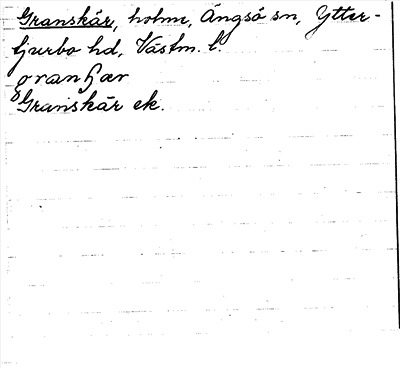 Granskär, holme, Ängsö sn, Ytter-
tjurbo hd, Västm. l.
granʃær
Granskär ek.